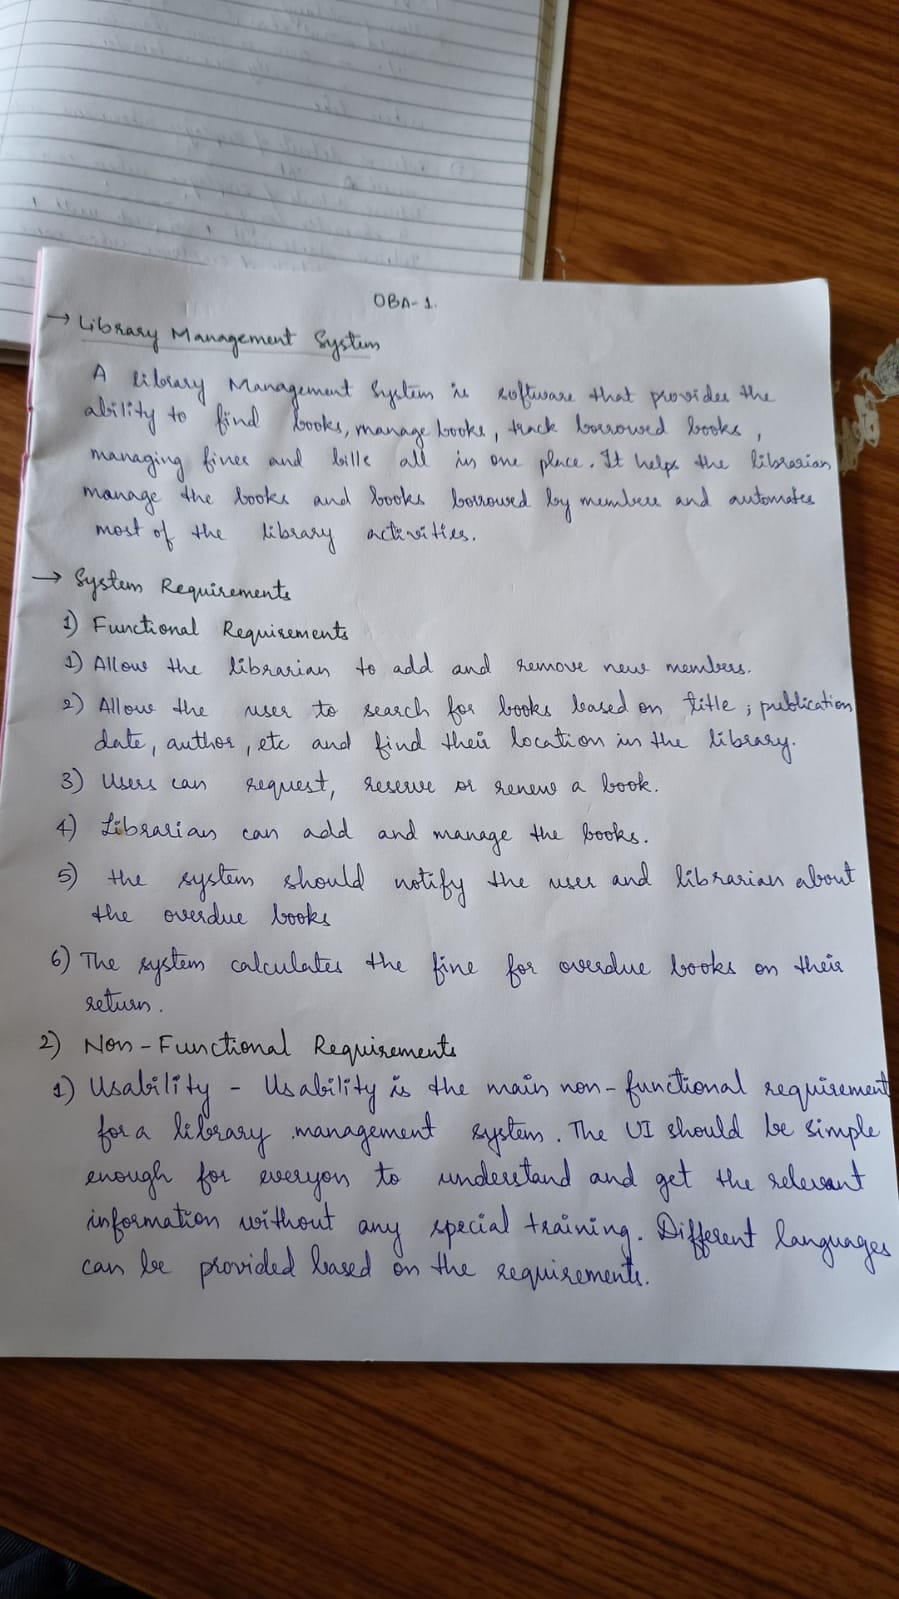 OBA-1.
→ Library Management System
A library Management System is software that provides the
ability to find books, manage books, track borrowed books,
managing fines and bills all in one place. It helps the librarian
manage the books and books borrowed by members and automates
most of the library activities.
→ System Requirements
1) Functional Requirements
1) Allow the librarian to add and remove new members.
2) Allow the user to search for books based on title, publication
date, author, etc and find their location in the library.
3) Users can request, reserve or renew a book.
4) Librarian can add and manage the books.
5) the system should notify the user and librarian about
the overdue books
6) The system calculates the fine for overdue books on their
return.
2) Non-Functional Requirements
1) Usability - Usability is the main non-functional requirement
for a library management system. The UI should be simple
enough for everyon to understand and get the relevant
information without any special training. Different languages
can be provided based on the requirements.